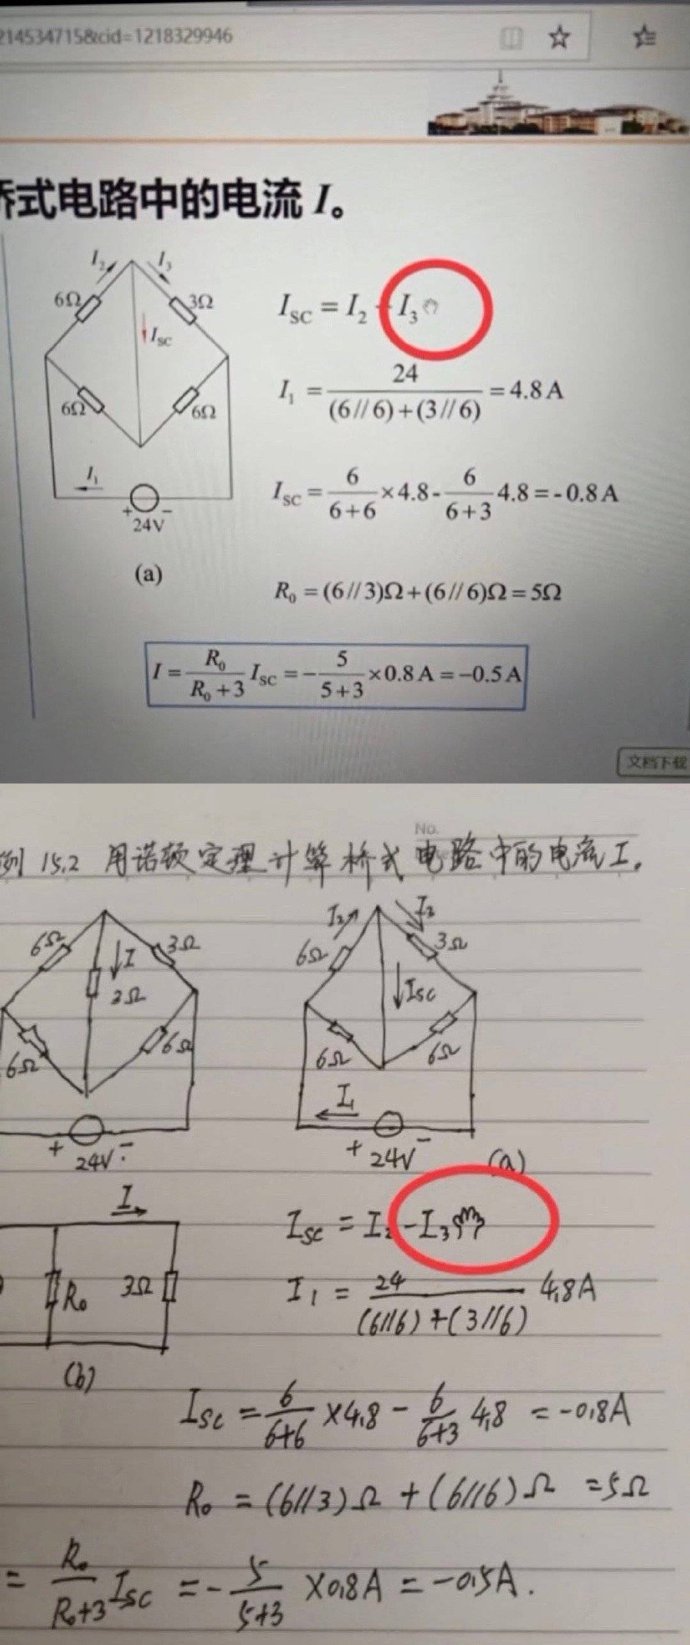 2145347158cid=1218329946
桥式电路中的电流 I。
I₂
I₃
6Ω
3Ω
I_SC
6Ω
6Ω
I₁
+
−
24V
(a)
I_SC = I₂ - I₃
I₁ = 24/((6//6)+(3//6)) = 4.8 A
I_SC = 6/(6+6) ×4.8 - 6/(6+3) 4.8 = - 0.8 A
R₀ = (6//3)Ω + (6//6)Ω = 5Ω
I = R₀/(R₀+3) I_SC = - 5/(5+3) ×0.8 A = −0.5 A
文档下载
No.
例 15.2 用诺顿定理计算桥式电路中的电流 I.
6Ω
3Ω
I
3Ω
6Ω
6Ω
+ 24V -
I₂
I₃
6Ω
3Ω
Isc
6Ω
6Ω
I₁
+ 24V -
(a)
I
R₀
3Ω
(b)
Isc = I₂ - I₃
I₁ = 24/((6//6)+(3//6)) 4.8A
Isc = 6/(6+6) ×4.8 - 6/(6+3) 4.8 = -0.8A
R₀ = (6//3)Ω + (6//6)Ω = 5Ω
= R₀/(R₀+3) Isc = - 5/(5+3) ×0.8A = -0.5A.